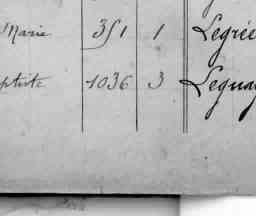 Marie 351 1 Legrée
ptiste 1036 3 Lequa